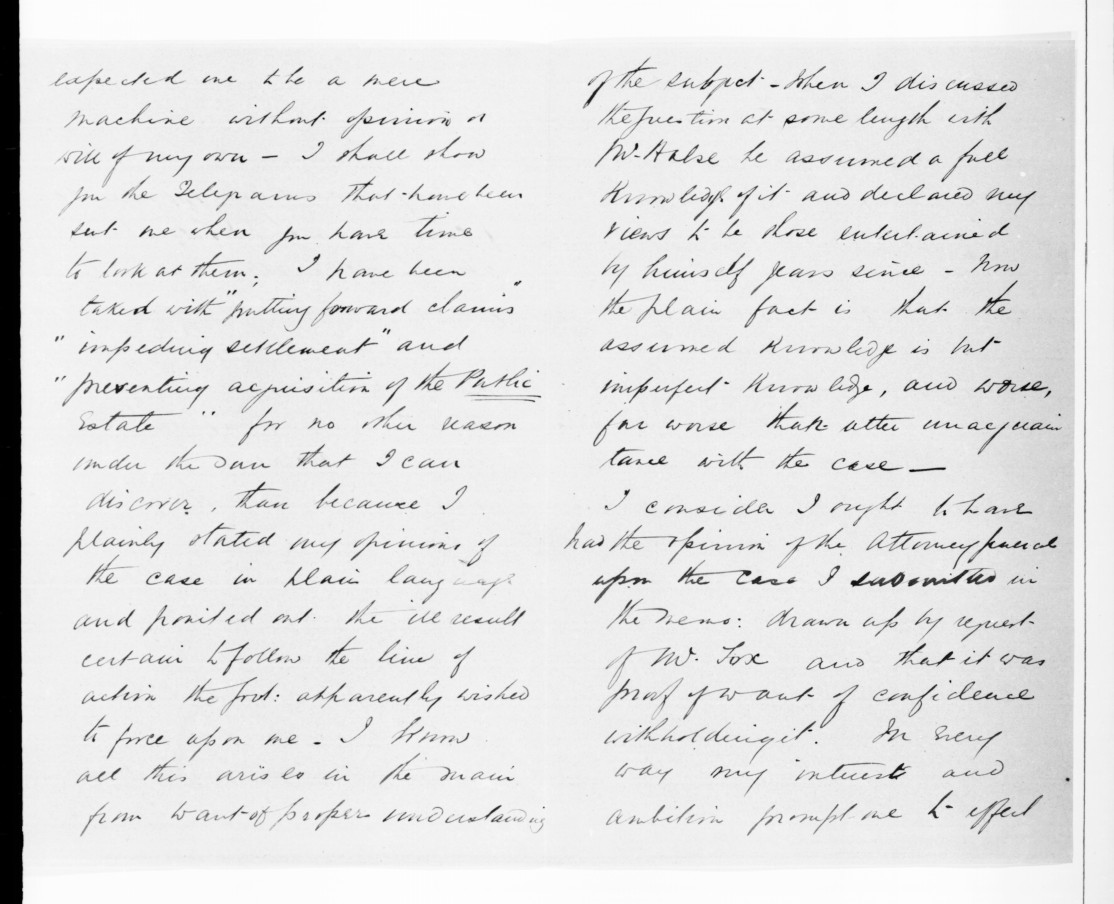 expected me to be a mere
machine without opinion or
will of my own – I shall show
you the Telegrams that have been
sent me when you have time
to look at them. I have been
taxed with "putting forward claims"
"impeding settlement" and
"preventing acquisition of the Public
Estate" for no other reason
under the Sun that I can
discover, than because I
plainly stated my opinions of
the case in plain language
and pointed out the ill result
certain to follow the line of
action the Govt: apparently wished
to force upon me – I know
all this arises in the main
from want of proper understanding
of the subject – When I discussed
the question at some length with
Mr. Halse he assumed a full
Knowledge of it and declared my
views to be those entertained
by himself years since – Now
the plain fact is that the
assumed Knowledge is but
imperfect Knowledge, and worse,
far worse than utter unacquain
tance with the case —
I consider I ought to have
had the opinion of the Attorney General
upon the case I submitted in
the memo: drawn up by request
of Mr. Fox and that it was
proof of want of confidence
withholding it. In every
way my interest and
ambition prompt me to effect